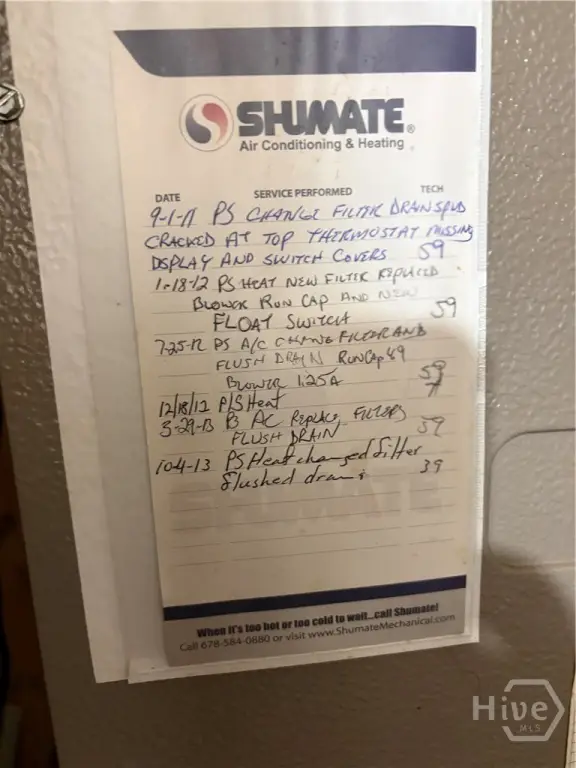 SHUMATE®
Air Conditioning & Heating
DATE SERVICE PERFORMED TECH
9-1-11 PS CHANGE FILTER DRAIN SPUD
CRACKED AT TOP THERMOSTAT MISSING
DISPLAY AND SWITCH COVERS 59
1-18-12 PS HEAT NEW FILTER REPLACED
BLOWER RUN CAP AND NEW
FLOAT SWITCH 59
7-25-12 PS A/C CHANGE FILTER AND
FLUSH DRAIN RUN CAP 49
BLOWER 1.25A 59
12/18/12 P/S Heat 71
3-29-13 PS AC REPLACE FILTERS
FLUSH DRAIN 59
10-4-13 PS Heat changed filter
flushed drain 39
When it's too hot or too cold to wait...call Shumate!
Call 678-584-0880 or visit www.ShumateMechanical.com
Hive
MLS